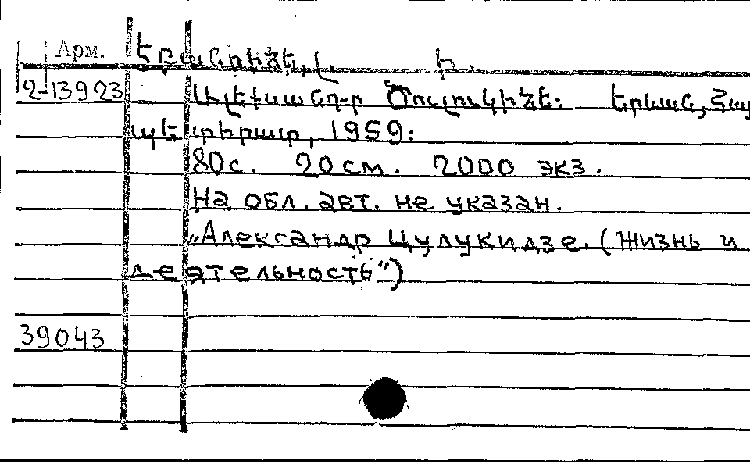 Арм. Երանիձե, Լ. Ի.
2-13923 Ալեքսանդր Ծուլուկիձե. Երևան, Հայ
պետհրատ, 1959:
80 с. 20 см. 2000 экз.
На обл. авт. не указан.
„Александр Цулукидзе. (Жизнь и
деятельность")
39043